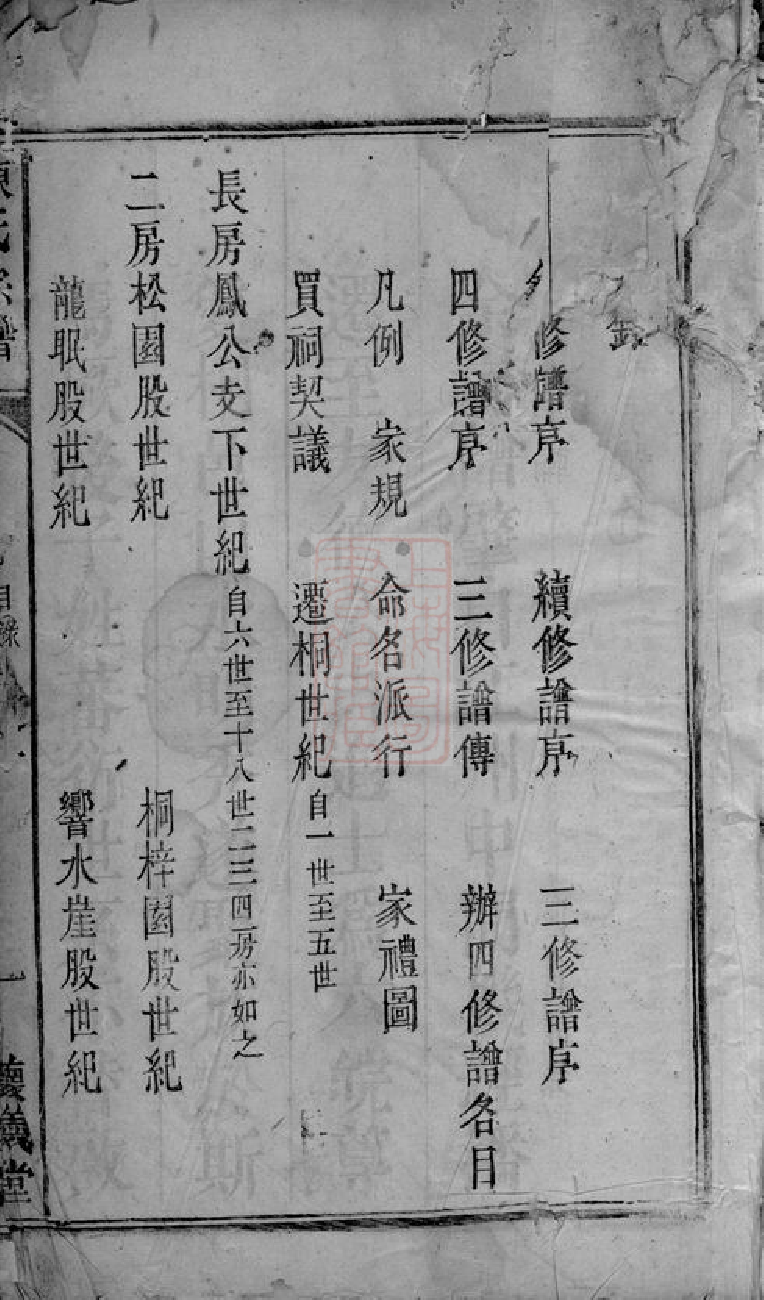 修譜序 續修譜序 三修譜序
四修譜序 三修譜傳 辦四修譜名目
凡例 家規 命名派行 家禮圖
買祠契議 遷桐世紀 自一世至五世
長房鳳公支下世紀 自六世至十八世二三四房亦如之
二房松園股世紀 桐梓園股世紀
龍眠股世紀 響水崖股世紀
氏宗譜 目錄 一 義堂